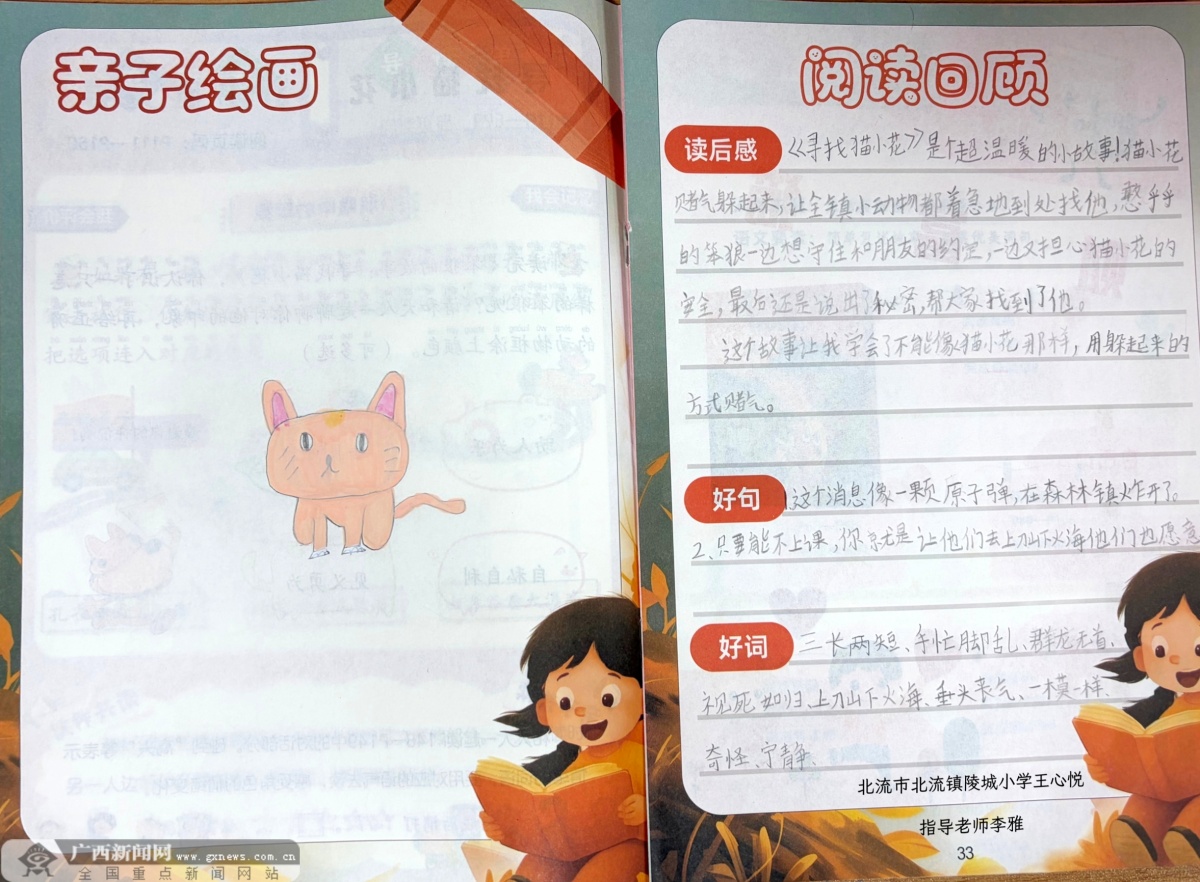 亲子绘画
阅读回顾
读后感
《寻找猫小花》是个超温暖的小故事!猫小花
赌气躲起来,让全镇小动物都着急地到处找他,憨乎乎
的笨狼一边想守住和朋友的约定,一边又担心猫小花的
安全,最后还是说出了秘密,帮大家找到了他。
这个故事让我学会了不能像猫小花那样,用躲起来的
方式赌气。
好句
1.这个消息像一颗原子弹,在森林镇炸开了。
2、只要能不上课,你就是让他们去上刀山下火海他们也愿意
好词
三长两短、手忙脚乱、群龙无首、
视死如归、上刀山下火海、垂头丧气、一模一样、
奇怪、宁静、
北流市北流镇陵城小学王心悦
指导老师李雅
33
广西新闻网 www.gxnews.com.cn
全国重点新闻网站